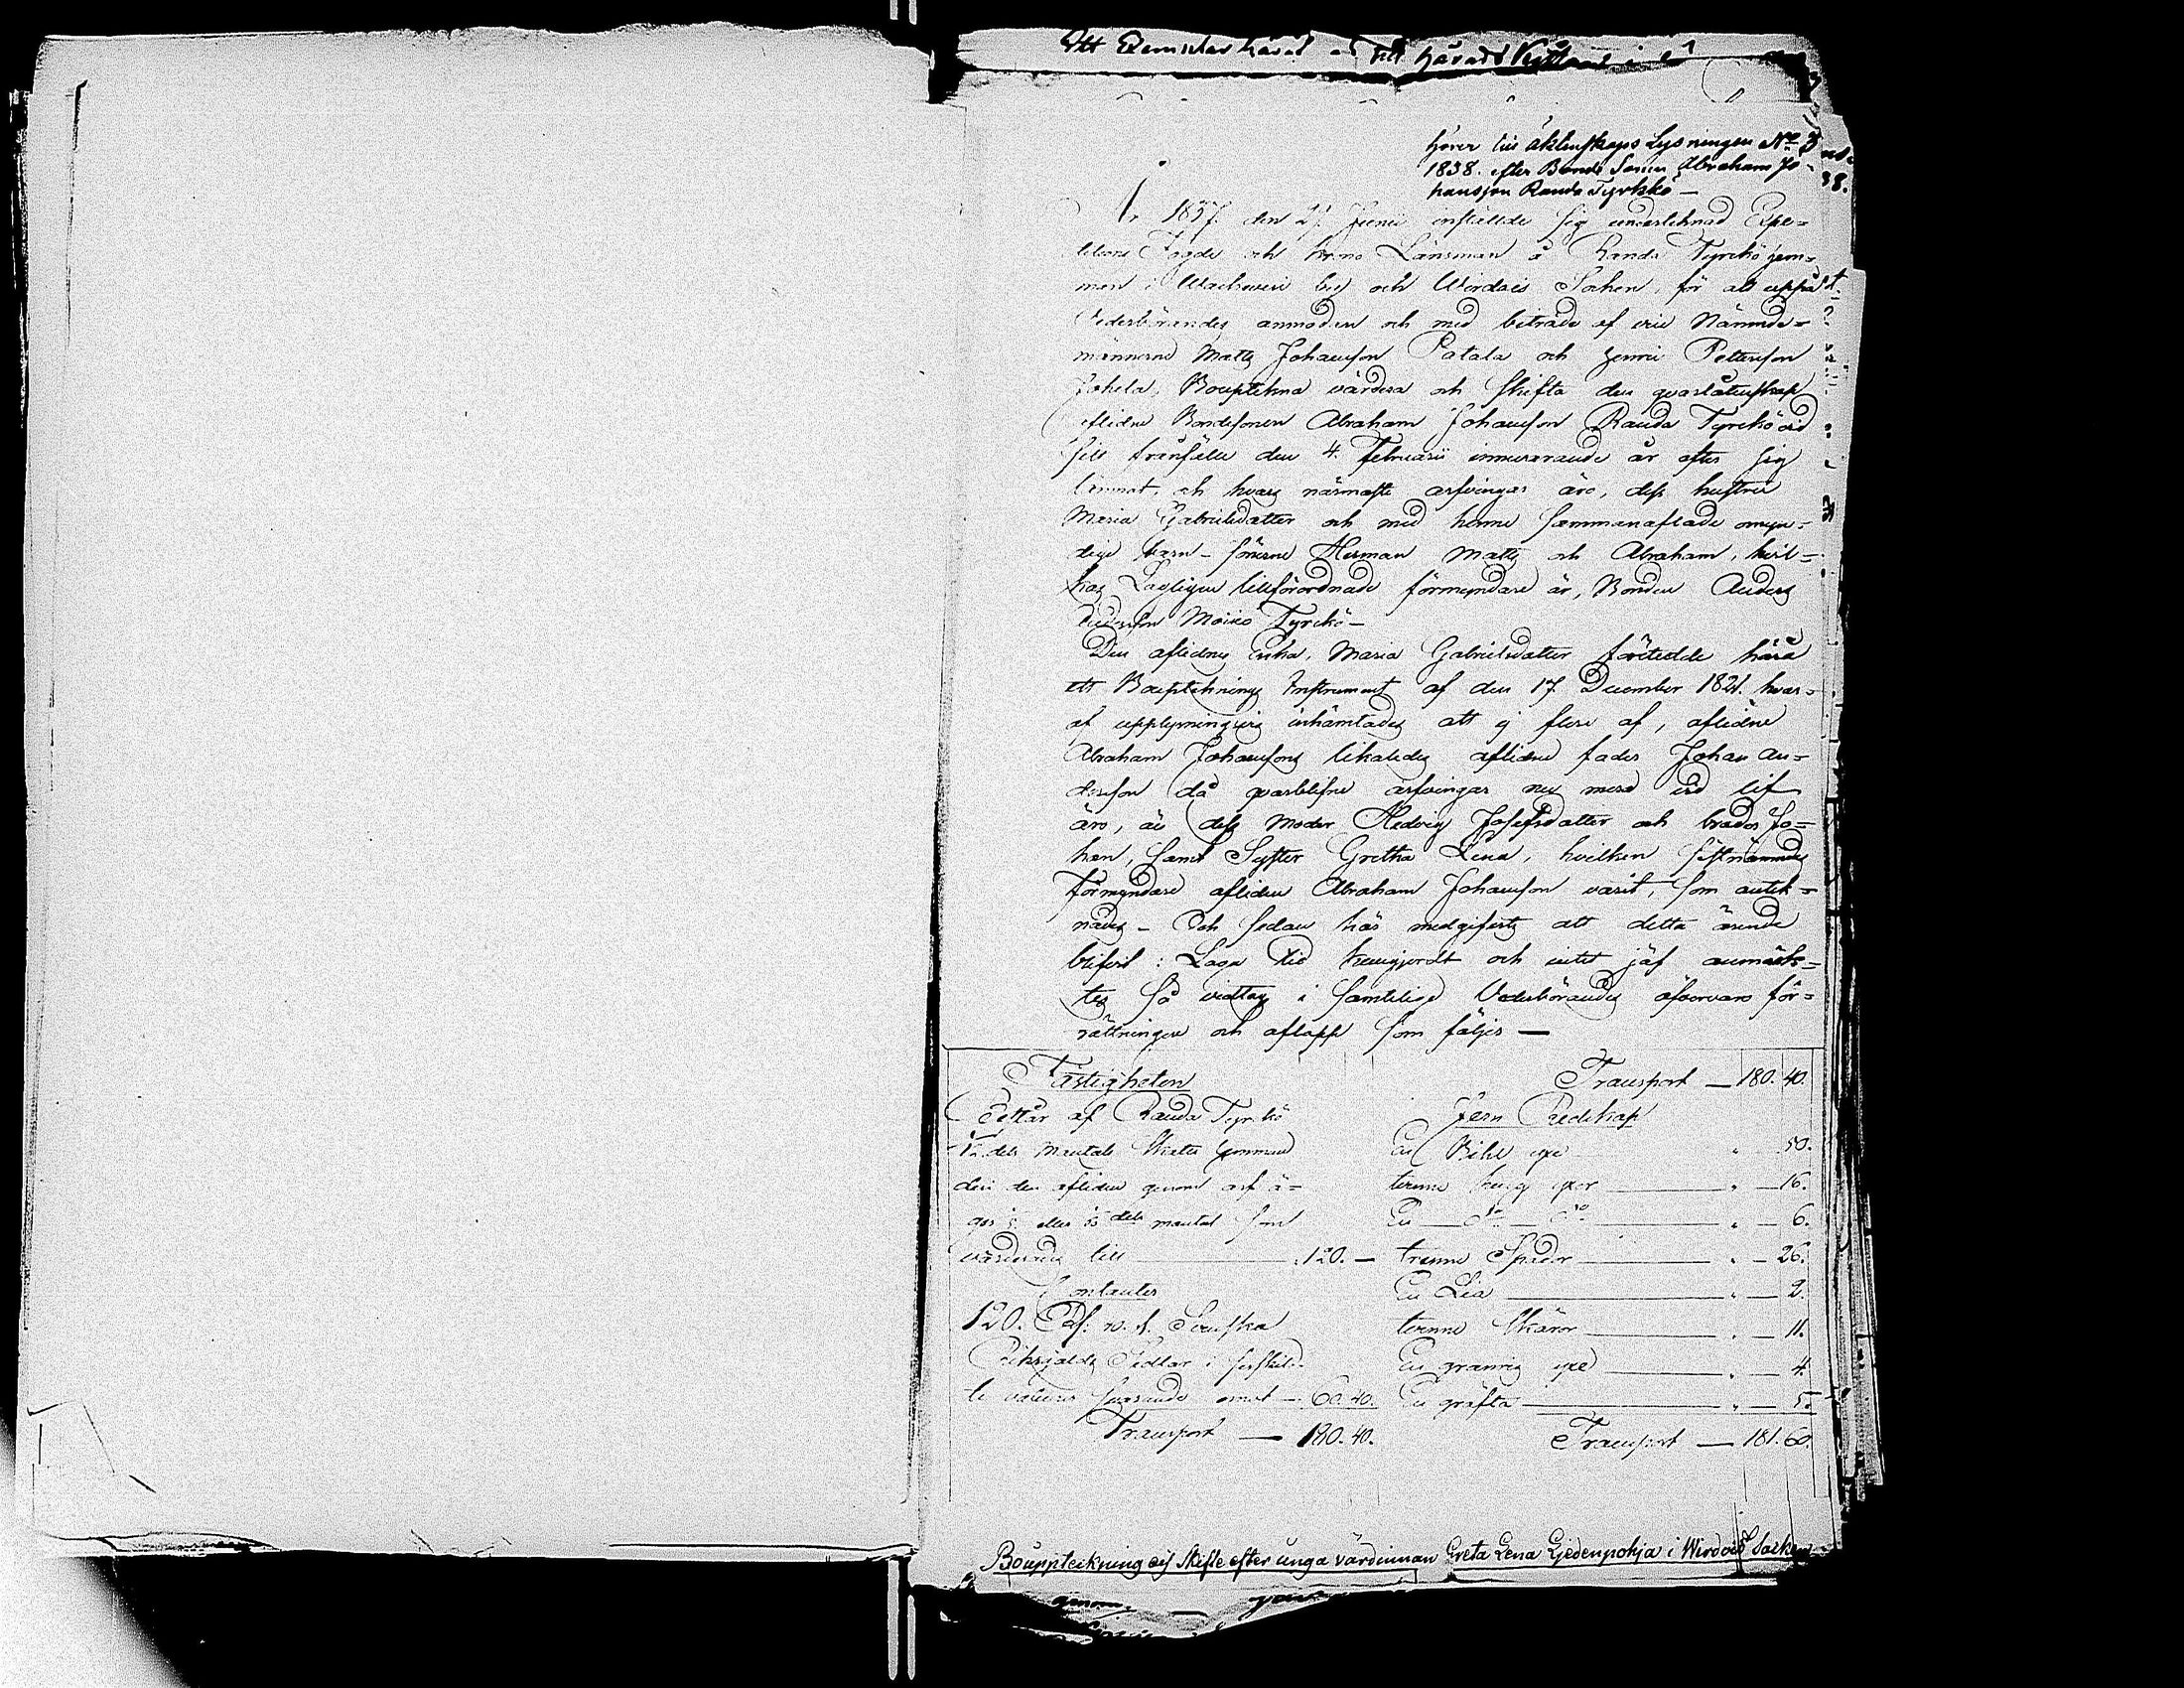 Hörer till äktenskaps Lysningen No 3
1838. efter Bonde Sonen Abraham Jo-
hansson Randa Tyrkkö —
År 1837 den 27 Junii instälde sig underteknad Expe-
ditions Fogde och krono Länsman å Randa Tyrckö hem-
man i Wachoveri by och Wirdois Socken, för att uppå
Vederbörandes anmodan och med biträde af Nämnde-
männerne Matts Johansson Patala och Henric Pettersson
Jokela, Bouptekna värdera och skifta den qvarlåtenskap
aflidne Bondesonen Abraham Johansson Randa Tyrckö vid
sitt frånfälle den 4. Februarii innevarande år efter sig
lämnat, och hvars närmaste arfvingar äro, dess hustru
Maria Gabrielsdatter och med henne sammanaflade omyn-
dige barn - sönerne Herman Matts och Abraham, hvil-
kas Lagligen tillförordnade förmyndare är, Bonden Anders
Andersson Moiso Tyrckö —
Den aflidnes Enka, Maria Gabrielsdatter företedde härå
ett Boupteknings Instrument af den 17 December 1821. hvar-
af upplysningsvis inhämtades att ej flere af, aflidne
Abraham Johanssons likaledes aflidne fader Johan An-
dersson då qvarblifne arfvingar nu mera vid lif
äro, än dess Moder Hedvig Josefsdatter och broder Jo-
han, samt Syster Gretha Lena, hvilken sistnämndes
förmyndare aflidne Abraham Johansson varit, som antek-
nades - Och sedan här medgifvets att detta ärende
blifvit i Laga tid kungjordt och intet jäf anmärk-
tes så vidtogs i samtelige Vederbörandes öfvervaro för-
rättningen och aflopp som följer —
Fastigheten
Cettär af Randa Tyrckö
dels Mantals Skatte hemman
den aflidne genom arf ä-
ger eller dels mantal som
värderades till — 120. —
Contanter
120. Rd. Svenska
Riksgälds Sedlar i serskil-
te valeurer svarande emot — 60. 40.
Transport — 180. 40.
Transport — 180. 40.
Jern Redskap
En Bihl yxe — 50.
tvenne hugg yxor — 16.
En do do — 6.
trenne Spador — 26.
En Lia — 2.
tvenne Skäror — 11.
En yxe — 4.
En gräfta — 5.
Transport — 181. 60.
Bouppteckning och Skifte efter unga värdinnan Greta Lena Ejedenpohja i Wirdois Socken